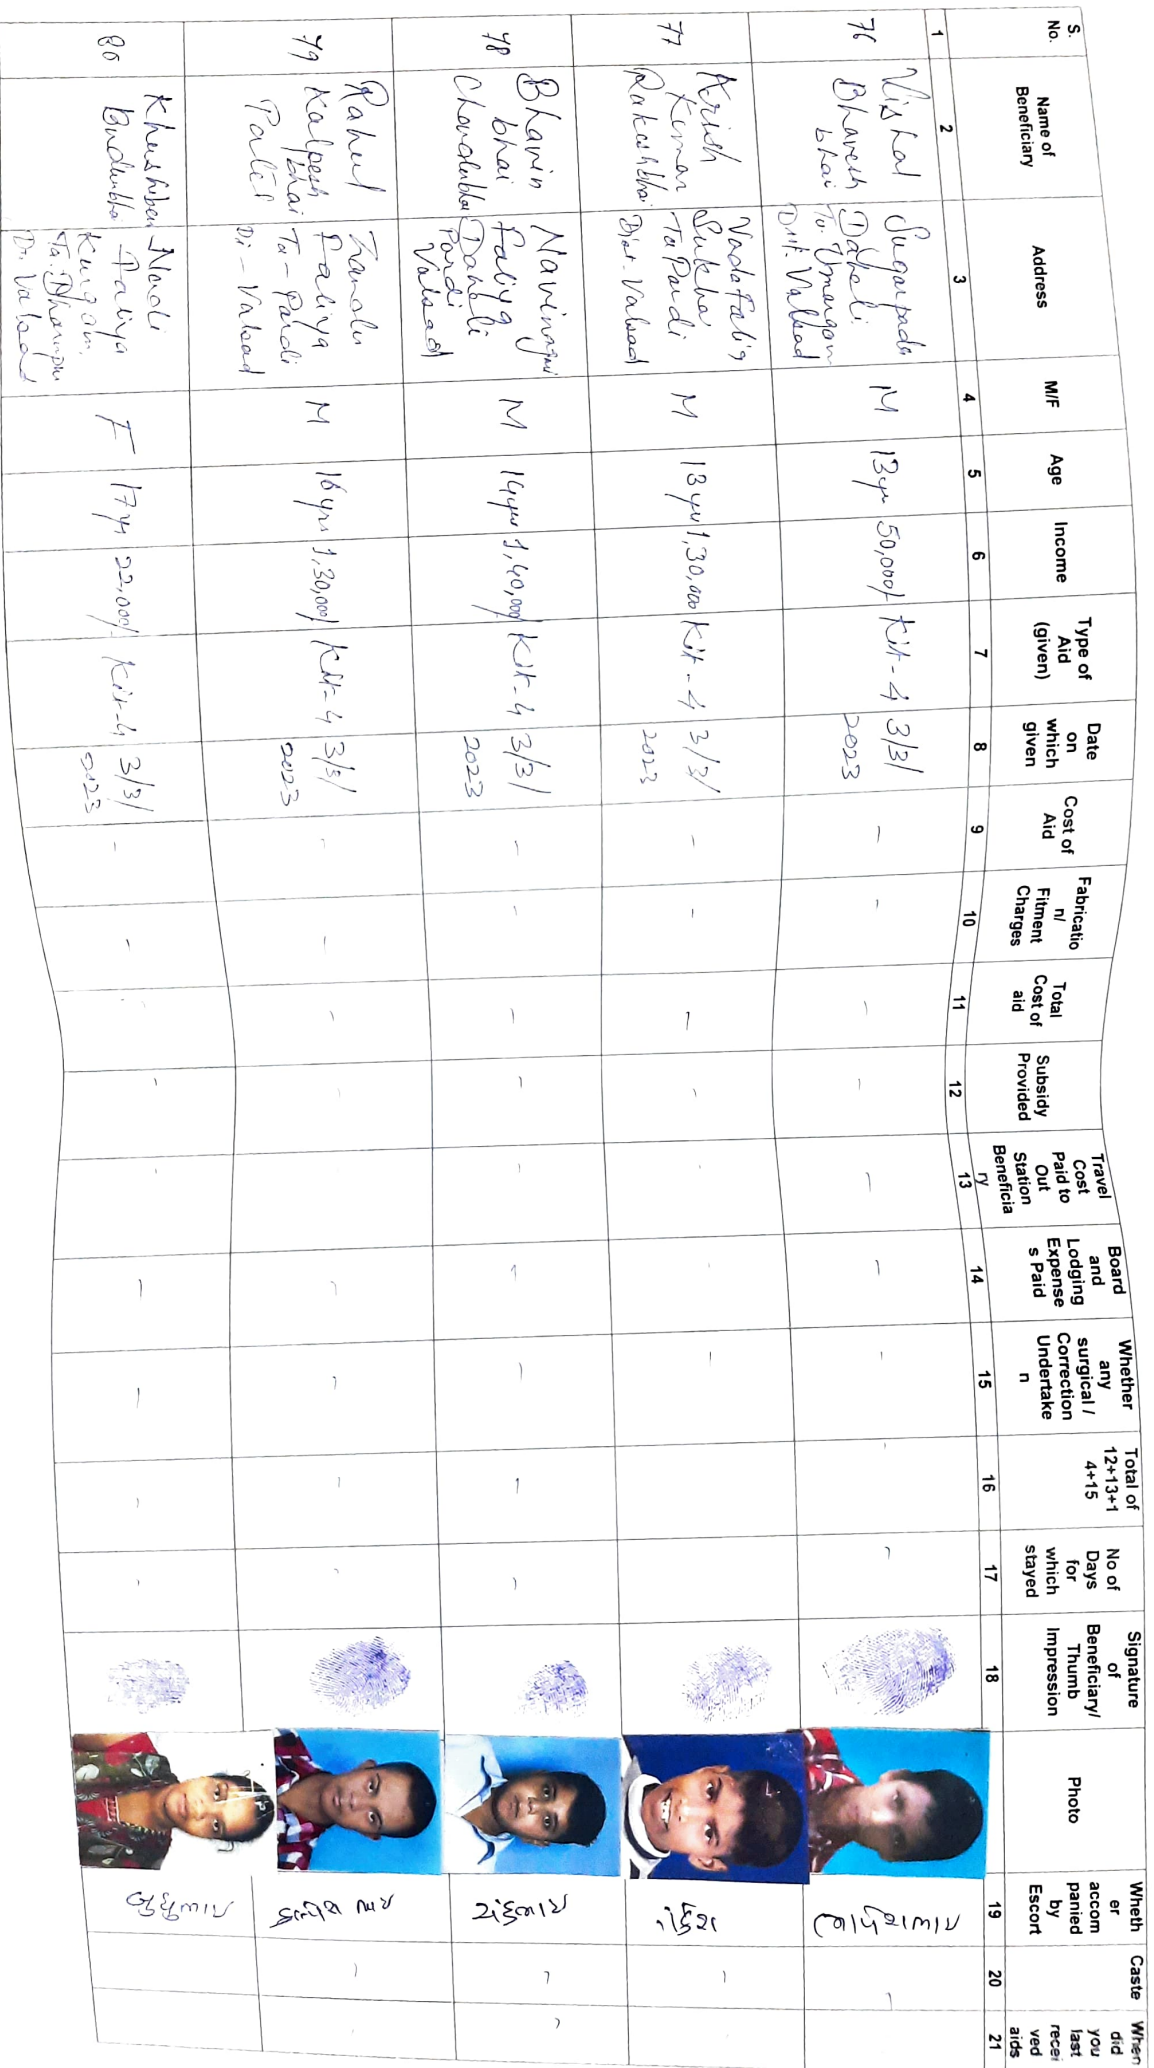 S. No.
Name of Beneficiary
Address
M/F
Age
Income
Type of Aid (given)
Date on which given
Cost of Aid
Fabricatio n/ Fitment Charges
Total Cost of aid
Subsidy Provided
Travel Cost Paid to Out Station Beneficia ry
Board and Lodging Expense s Paid
Whether any surgical / Correction Undertake n
Total of 12+13+1 4+15
No of Days for which stayed
Signature of Beneficiary/ Thumb Impression
Photo
Wheth er accom panied by Escort
Caste
When did you last recei ved aids
1 2 3 4 5 6 7 8 9 10 11 12 13 14 15 16 17 18 19 20 21
76
Vishal
Bhavesh
bhai
Sugarpada
Daheli
Ta. Umargam
Dist. Valsad
M
13 yr
50,000/
Kit - 4
3/3/
2023
77
Krish
Kumar
Vada faliya
Sukha
Ta Pardi
Dist. Valsad
M
13 yrs
1,30,000
Kit - 4
3/3/
2023
78
Bhavin
bhai
Chandubhai
faliya
Pardi
Valsad
M
14 yrs
1,40,000/
Kit - 4
3/3/
2023
ચંદુભાઇ
79
Rahul
Kalpesh
bhai
Patel
Faliya
Ta - Pardi
Di - Valsad
M
16 yrs
1,30,000/
Kit - 4
3/3/
2023
80
Khushiben
Faliya
Di. Valsad
F
17 yr
22,000/
Kit - 4
3/3/
2023